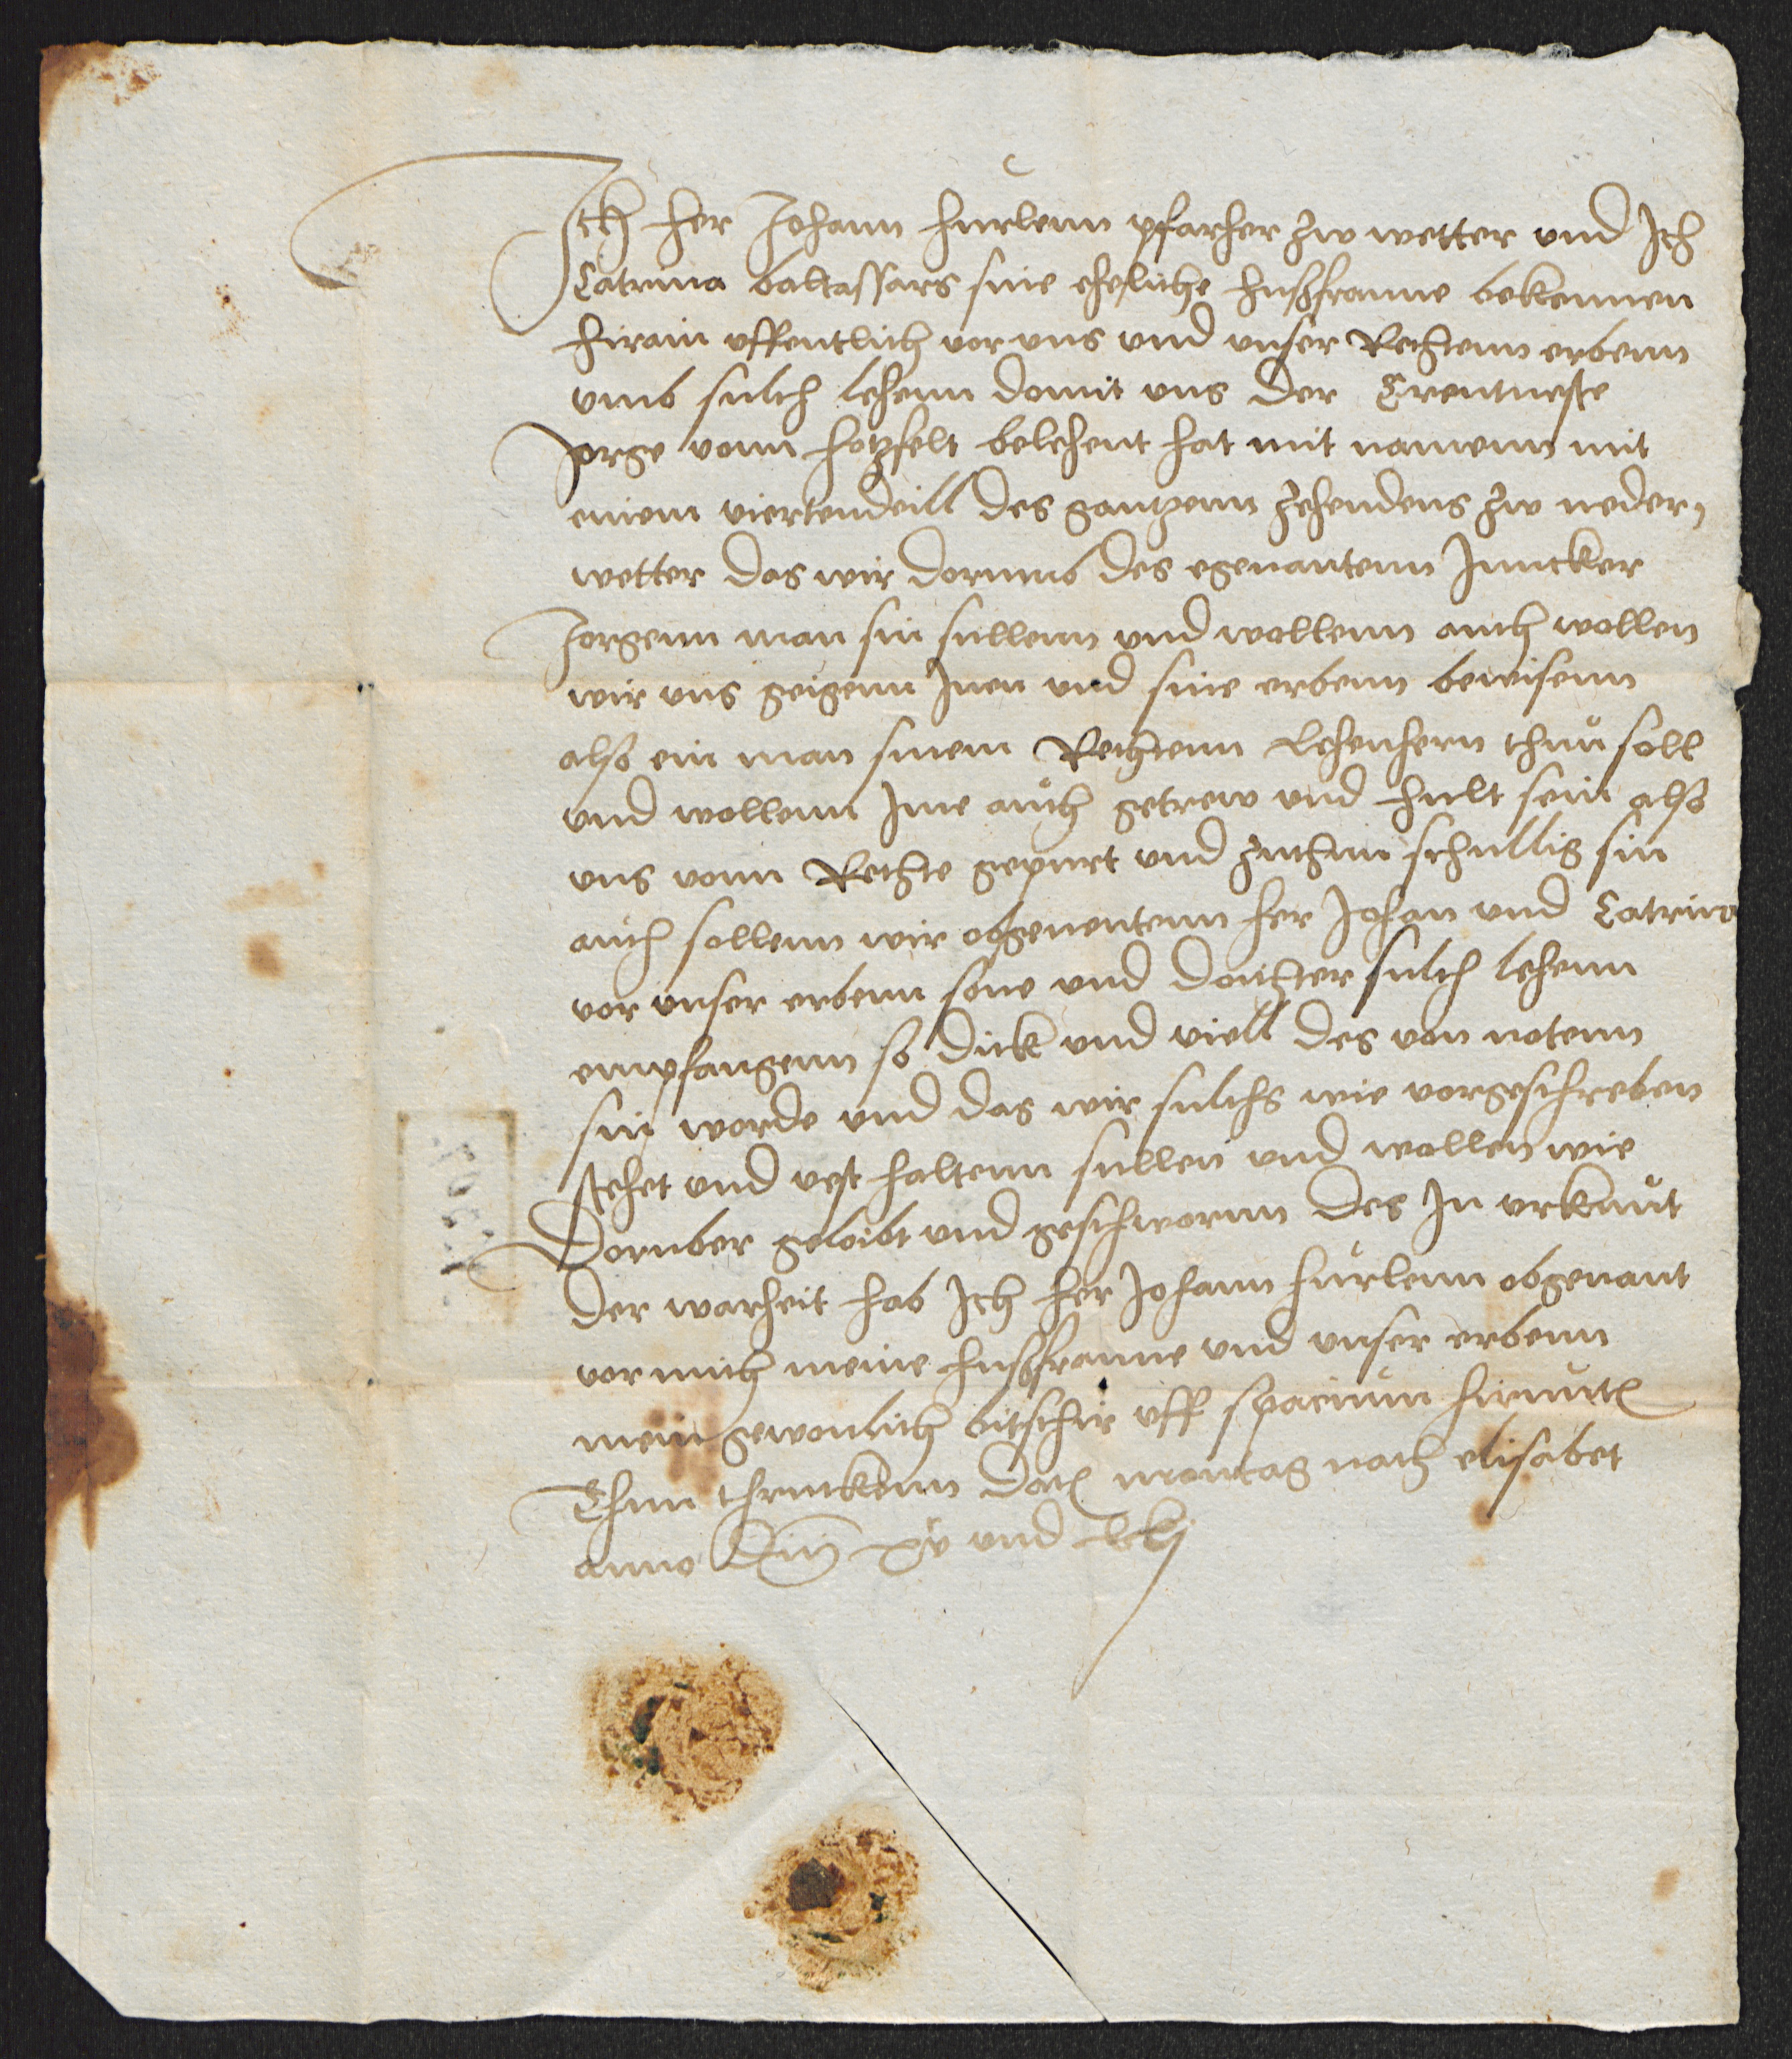 Ich her Johann hurlenn pfarher zw wetter und Ich
Catrina baltassars sine eheliche hußfrauwe bekennen
hirain uffentlich vor uns und unser Rechtenn erbenn
umb sulch lehenn domit uns der Erentueste
Jorge vonn hotzfelt belehent hat mit namenn mit
einem viertendeill des gantzenn zehendens zw neder,
wetter das wir dorumb des egenantenn Juncker
Jorgenn man sin sullenn und wollenn auch wollen
wir uns geigenn Inen und sine erbenn bewisenn
also ein man sinem Rechtenn Lehenhern thun soll
und wollenn Ime auch getrew und hult sein also
uns vonn Rechte gepurt und zuthun schullig sin
auch sollenn wir obgenentenn her Johan und Catrina
vor unser erbenn sone und dochter sulch lehenn
empfangenn so dick und viell des von notenn
sin worde und das wir sulchs wie vorgeschreben
stehet und vest haltenn sullen und wollen wie
Doruber geloibt und geschwornn des In urkunt
der warheit hab Ich her Johann hurlenn obgenant
vor mich meine hußfrauwe und unser erbenn
mein gewonlich bitschir uff spacium hirunden
Thun thruckenn dat montag nach elisabet
anno dm xv und